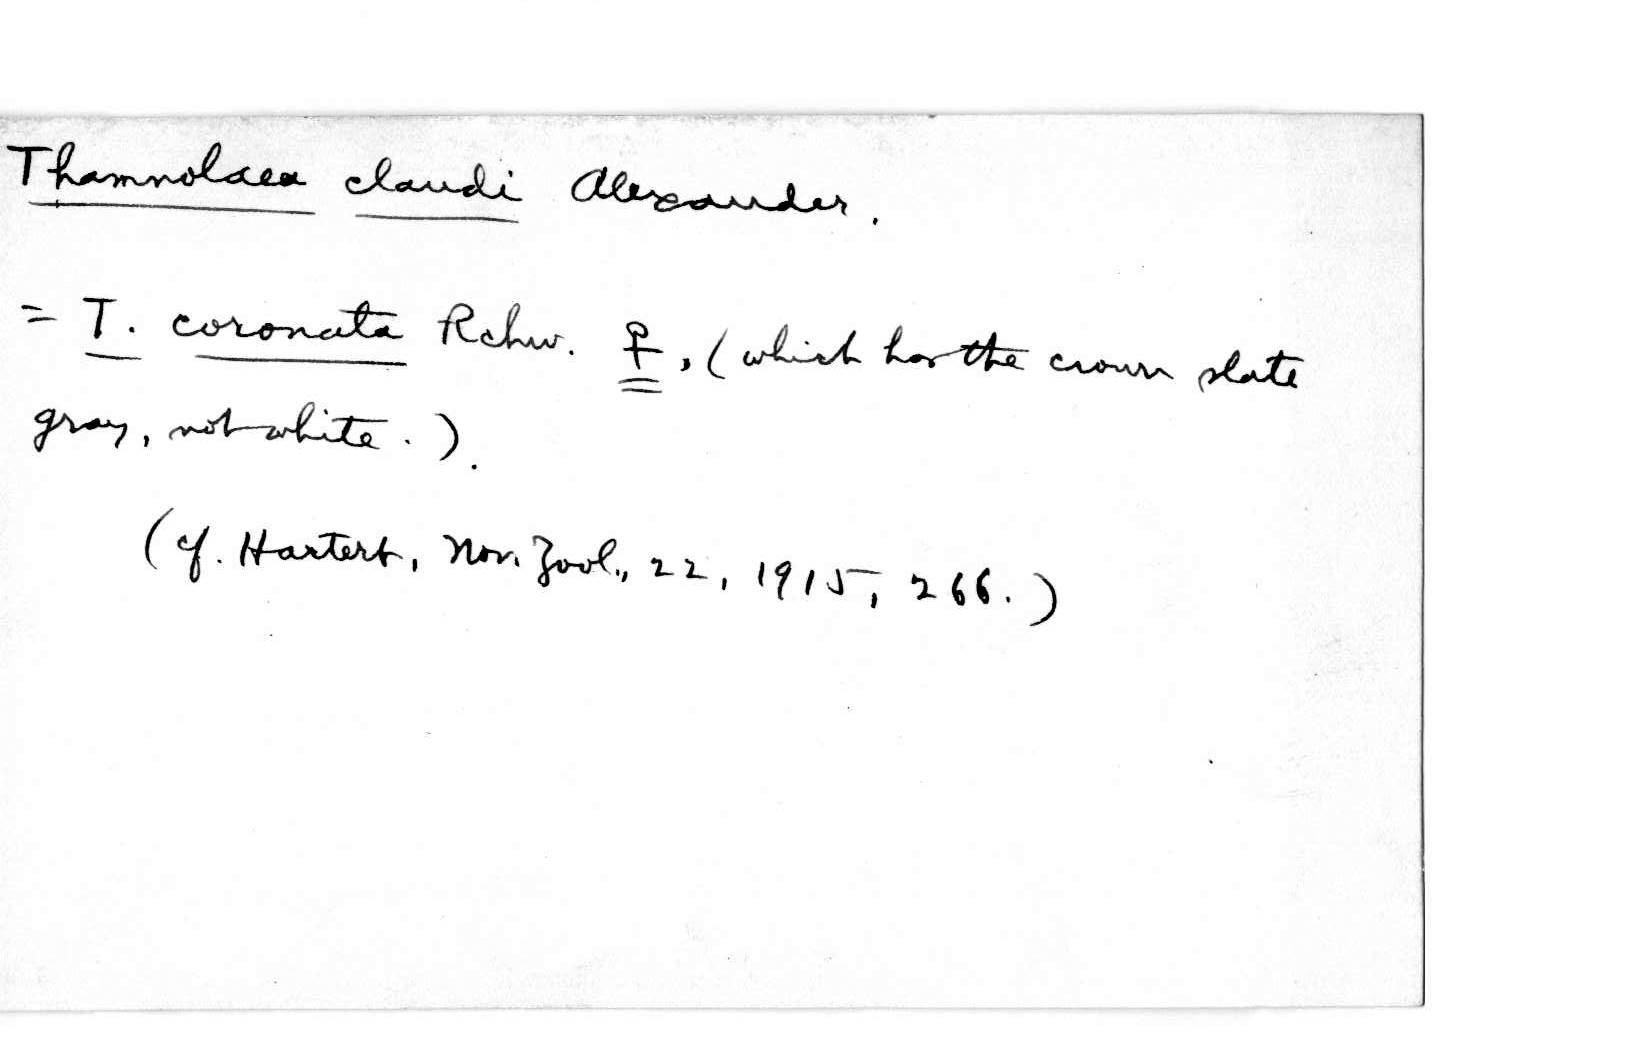 Thamnolaea claudi Alexander.
= T. coronata Rchw. ♀, (which has the crown slate
gray, not white.).
(cf. Hartert, Nov. Zool., 22, 1915, 266.)